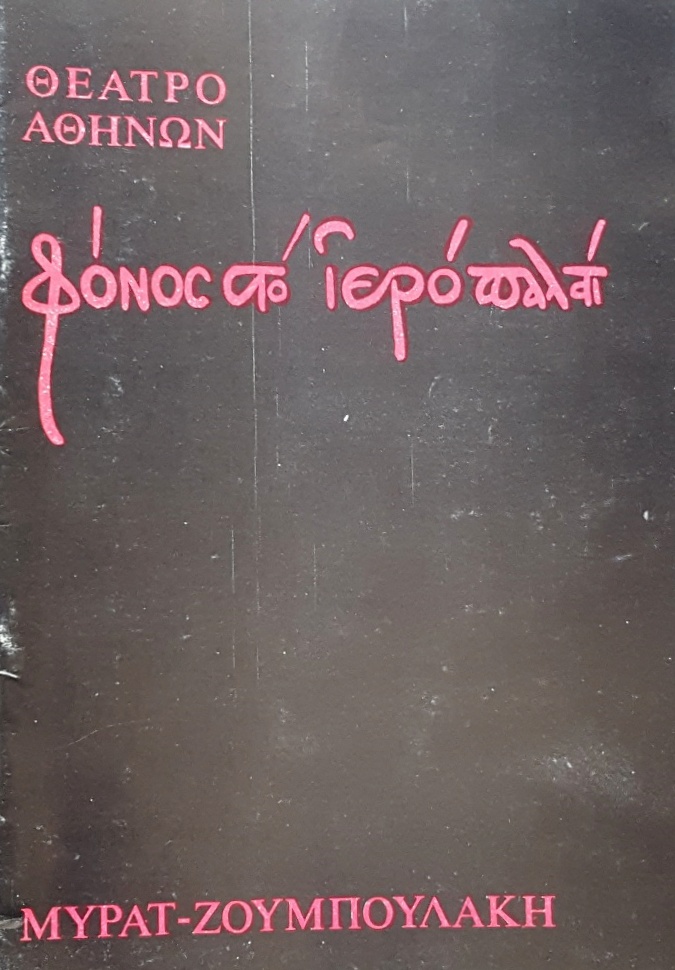 ΘΕΑΤΡΟ
ΑΘΗΝΩΝ
φόνος στό ἱερό παλάτι
ΜΥΡΑΤ-ΖΟΥΜΠΟΥΛΑΚΗ